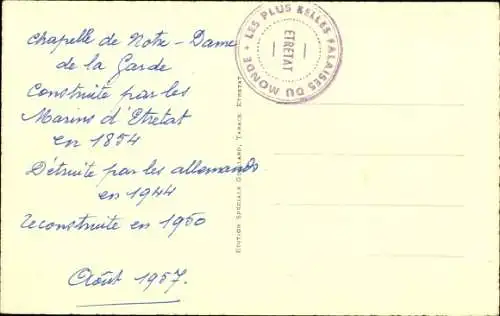 Chapelle de Notre-Dame
de la Garde
Construite par les
Marins d'Etretat
en 1854
Détruite par les allemands
en 1944
reconstruite en 1950
Août 1957.
LES PLUS BELLES FALAISES DU MONDE
ETRETAT
EDITION SPÉCIALE TABACS, ETRETAT